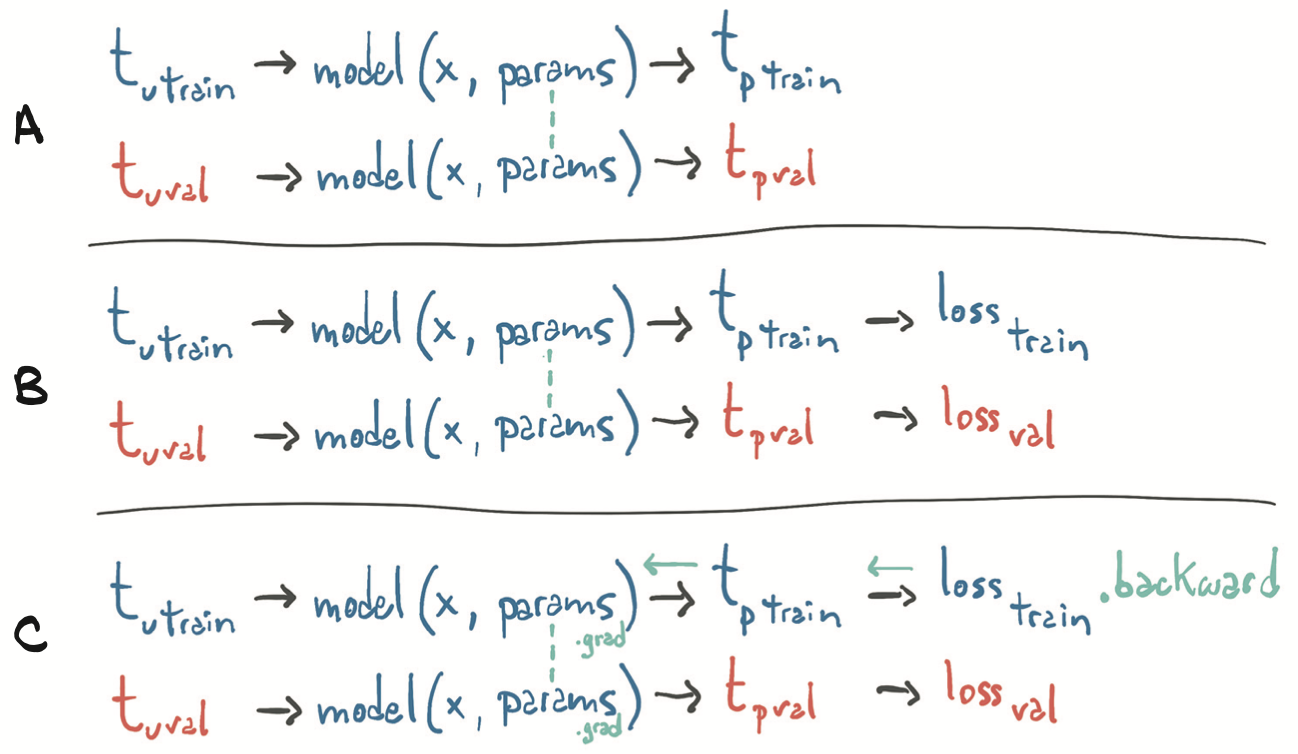 A
t_u train → model (x, params) → t_p train
t_u val → model (x, params) → t_p val
B
t_u train → model (x, params) → t_p train → loss train
t_u val → model (x, params) → t_p val → loss val
C
t_u train → model (x, params) ← → t_p train ← → loss train .backward
.grad
t_u val → model (x, params) → t_p val → loss val
.grad